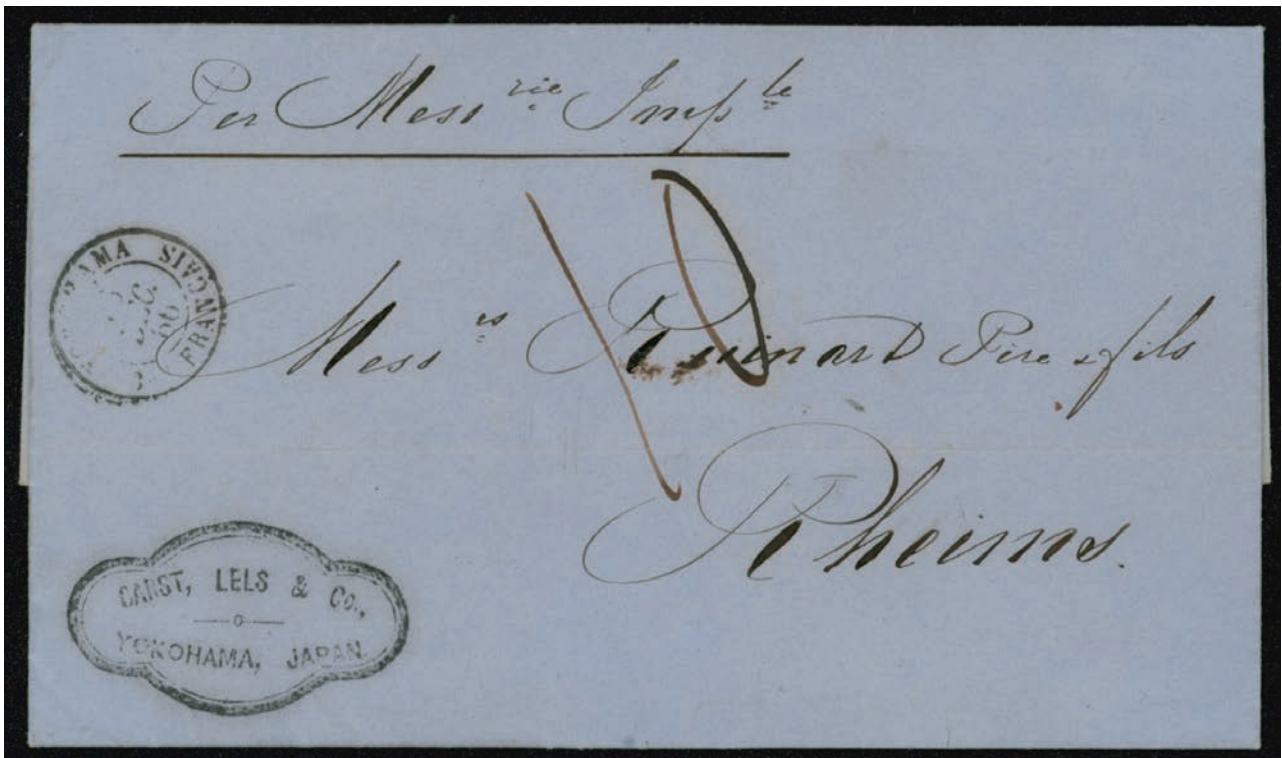 Per Mess rie Imp le
10
YOKOHAMA FRANCAIS
66
Mess rs Ruinart Père & fils
Rheims.
CARST, LELS & Co.,
YOKOHAMA, JAPAN.